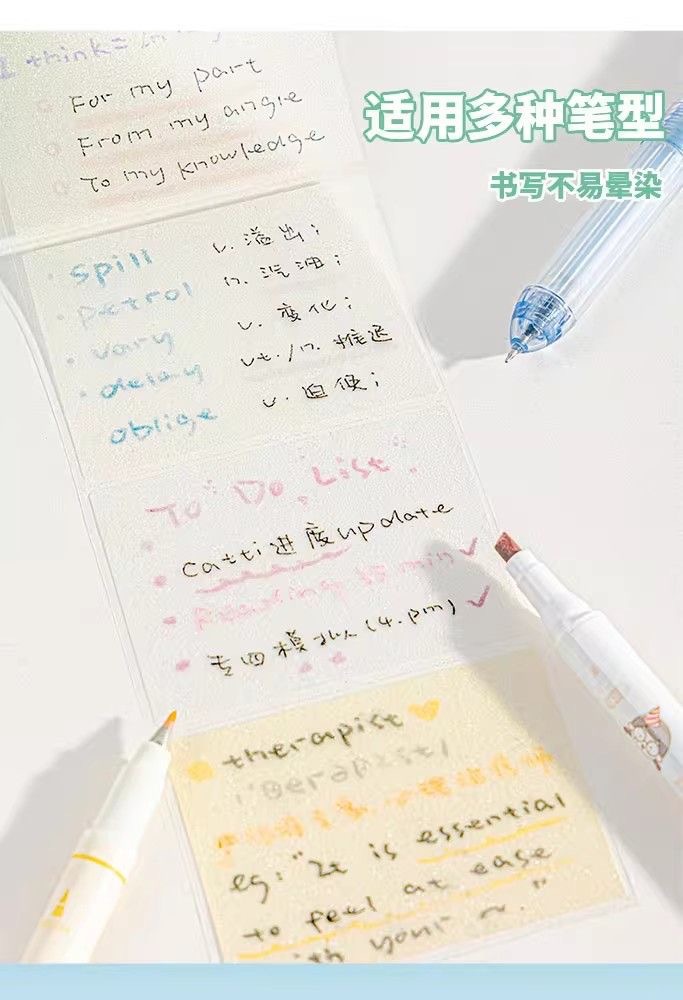 适用多种笔型
书写不易晕染
I think =
For my part
From my angle
To my knowledge
spill v. 溢出;
petrol n. 汽油;
vary v. 变化;
delay vt./n. 推迟
oblige v. 迫使;
To Do List
Catti进度update
Reading min
专四模拟(4.pm)
therapist
eg: "It is essential
to feel at ease
with your ~."